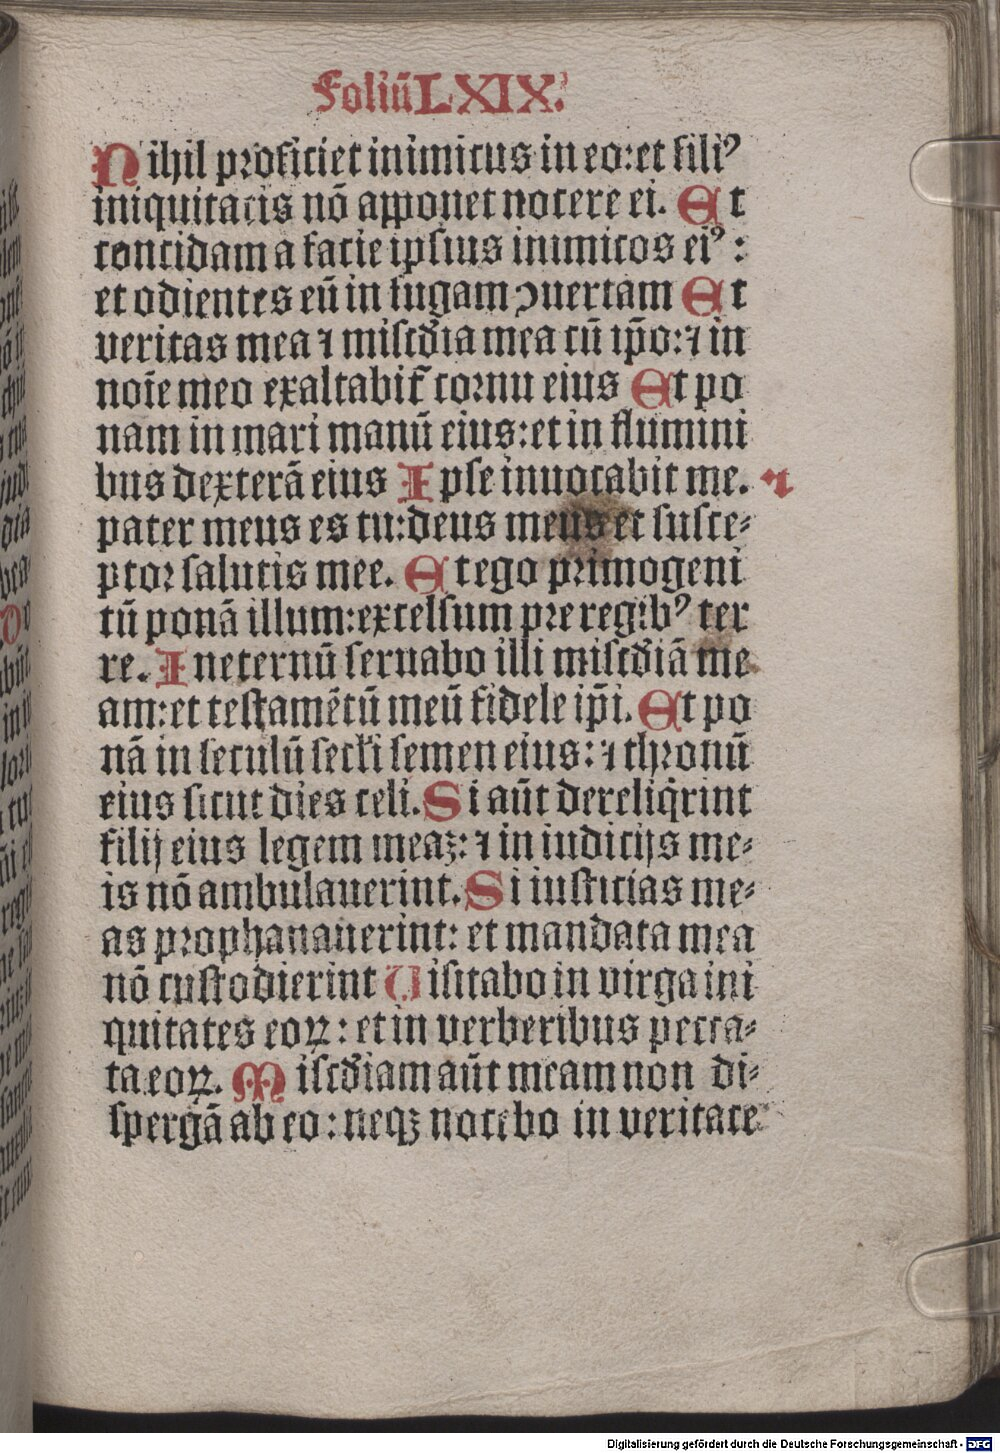 Foliū LXIX.
Nihil proficiet inimicus in eo: et fili⁹
iniquitatis nō apponet nocere ei. Et
concidam a facie ipsius inimicos ei⁹ :
et odientes eū in fugam ꝯuertam Et
veritas mea ⁊ miscd̄ia mea cū ip̄o: ⁊ in
noīe meo exaltabit̄ cornu eius Et po
nam in mari manū eius: et in flumini
bus dexterā eius Ipse inuocabit me. ⁊
pater meus es tu: deus meus et susce⸗
ptor salutis mee. Et ego primogeni
tū ponā illum: excelsum pre regib⁹ ter
re. In eternū seruabo illi miscd̄iā me
am: et testamētū meū fidele ip̄i. Et po
nā in seculū secĺi semen eius: ⁊ thronū
eius sicut dies celi. Si aūt dereliq̄rint
filij eius legem meaꝫ: ⁊ in iudicijs me⸗
is nō ambulauerint. Si iusticias me⸗
as prophanauerint: et mandata mea
nō custodierint Uisitabo in virga ini
quitates eoꝝ: et in verberibus pecca⸗
ta eoꝝ. Miscd̄iam aūt meam non di⸗
spergā ab eo: neqꝫ nocebo in veritate
Digitalisierung gefördert durch die Deutsche Forschungsgemeinschaft - DFG